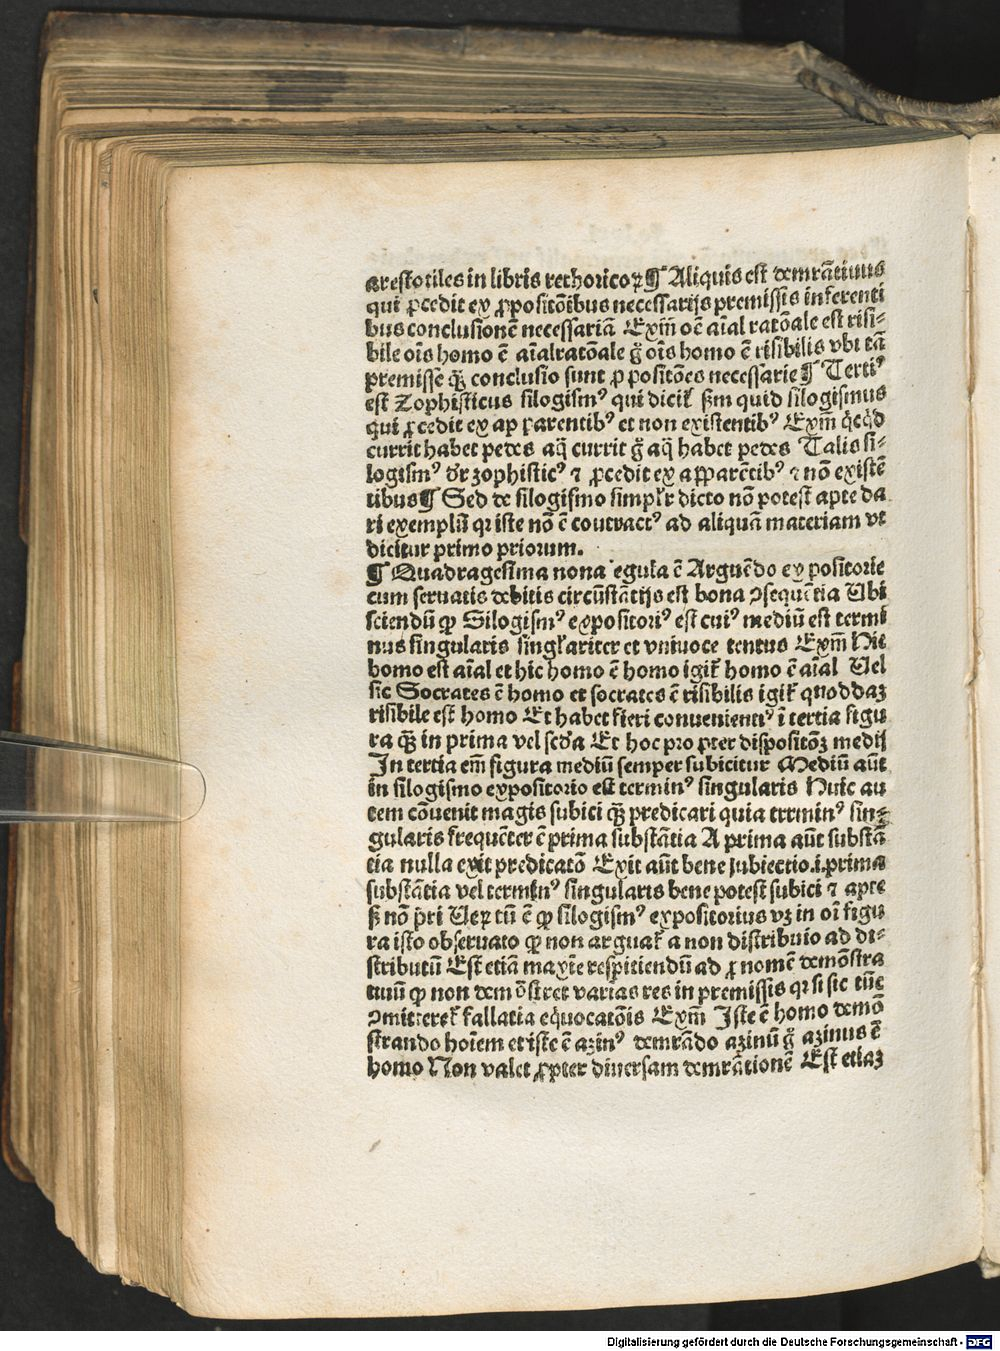 arestotiles in libris rethoricoꝝ ¶ Aliquis est demrātiuus
qui ꝓcedit ex ꝓpositōibus necessarijs premissis inferenti
bus conclusionē necessariā Exm̄ oē aīal ratōale est risi-
bile oīs homo ē aīalratōale gͦ oīs homo ē risibilis vbi tā
premisse qͣꝫ conclusio sunt ꝓpositōes necessarie ¶ Terti⁹
est Zophisticus silogism⁹ qui dicit᷑ ẜm quid silogismus
qui ꝓcedit ex apparentib⁹ et non existentib⁹ Exm̄ qͥcqͥd
currit habet pedes aqͣ currit gͦ aqͣ habet pedes Talis si-
logism⁹ dr̄ zophistic⁹ ⁊ ꝓcedit ex apparētib⁹ ⁊ nō existē
tibus ¶ Sed de silogismo simpłr dicto nō potest apte da
ri exemplū qꝛ iste nō ē contract⁹ ad aliquā materiam vt
dicitur primo priorum.
¶ Quadragesima nona regula ē Arguēdo expositorie
cum seruatis debitis circūstātijs est bona ꝯsequētia Ubi
sciendū ꝙ Silogism⁹ expositori⁹ est cui⁹ mediū est termi
nus singularis singłariter et vniuoce tentus Exm̄ Hic
homo est aīal et hic homo ē homo igit᷑ homo ē aīal Uel
sic Socrates ē homo et socrates ē risibilis igit᷑ quoddaꝫ
risibile est homo Et habet fieri conuenient⁹ ī tertia figu
ra qͣꝫ in prima vel scd̄a Et hoc propter dispositōꝫ medij
In tertia em̄ figura mediū semper subicitur Mediū aūt
in silogismo expositorio est termin⁹ singularis Huic au
tem cōuenit magis subici qͣꝫ predicari quia termin⁹ sin-
gularis frequēter ē prima substātia A prima aūt substā
tia nulla exit predicatō Exit aūt bene subiectio .i. prima
substātia vel termin⁹ singularis bene potest subici ⁊ apte
ẜ nō p̄ri Ueꝝ tū ē ꝙ silogism⁹ expositorius vꝫ in oī figu
ra isto obseruato ꝙ non arguat᷑ a non distributo ad di-
stributū Est etiā maxīe respitiendū ad ꝓnomē demōstra
tiuū ꝙ non demōstret varias res in premissis qꝛ si sic tūc
ꝯmitteret᷑ fallatia eqͥuocatōis Exm̄ Iste ē homo demō
strando hoīem et iste ē azin⁹ demrādo azinū gͦ azinus ē
homo Non valet ꝓpter diuersam demrātionē Est etiaꝫ
Digitalisierung gefördert durch die Deutsche Forschungsgemeinschaft - DFG